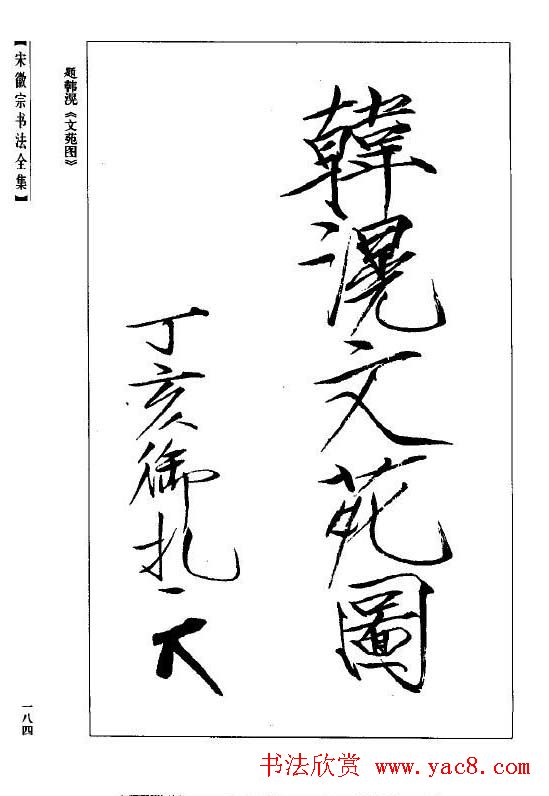 韓滉文苑圖
丁亥御札
题韩滉《文苑图》
【宋徽宗书法全集】
一八四
书法欣赏 www.yac8.com